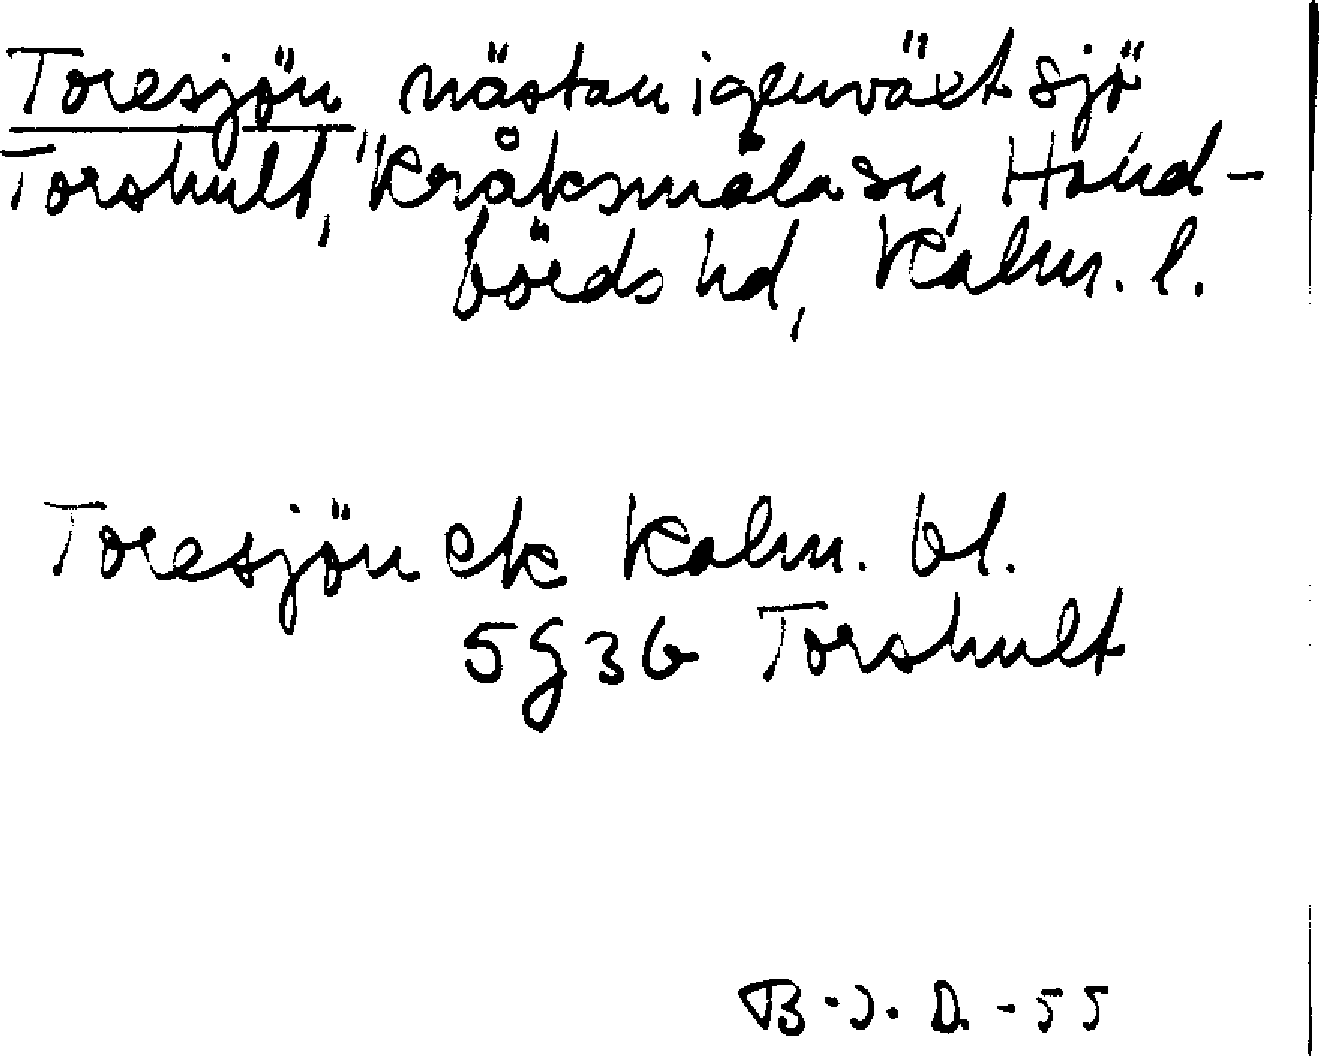 Toresjön nästan igenväxt sjö
Torshult, Kråksmåla sn, Hand-
börds hd, Kalm. l.
Toresjön ek Kalm. bl.
5g3b Torshult
B.J.D. -55